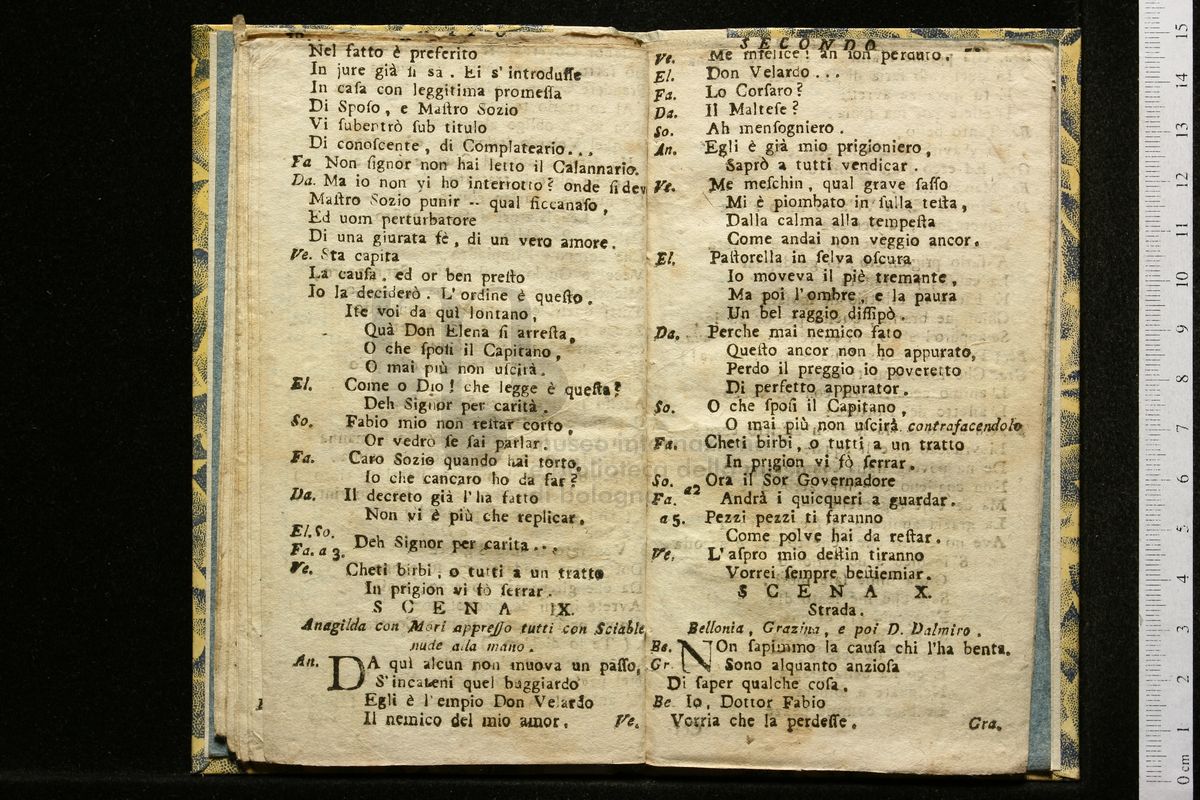 Nel fatto è preferito
In jure già si sa. Ei s'introdusse
In casa con leggitima promessa
Di Sposo, e Mastro Sozio
Vi subentrò sub titulo
Di conoscente, di Complateario...
Fa Non signor non hai letto il Calannario.
Da. Ma io non vi ho interiotto? onde si dev
Mastro Sozio punir -- qual ficcanaso,
Ed uom perturbatore
Di una giurata fè, di un vero amore.
Ve. Sta capita
La causa, ed or ben presto
Io la deciderò. L'ordine è questo.
Ite voi da quì lontano,
Quà Don Elena si arresta,
O che sposi il Capitano,
O mai più non uscirà.
El. Come o Dio! che legge è questa?
Deh Signor per carità.
So. Fabio mio non restar corto,
Or vedrò se sai parlar.
Fa. Caro Sozio quando hai torto,
Io che cancaro ho da far?
Da. Il decreto già l'ha fatto
Non vi è più che replicar.
El. So.
Fa. a 3. Deh Signor per carita...
Ve. Cheti birbi, o tutti a un tratto
In prigion vi fò serrar.
SCENA IX.
Anagilda con Mori appresso tutti con Sciable
nude alla mano.
An. DA quì alcun non muova un passo,
S'incateni quel buggiardo
Egli è l'empio Don Velardo
Il nemico del mio amor. Ve.
SECONDO
Ve. Me infelice! an son perduto.
El. Don Velardo...
Fa. Lo Corsaro?
Da. Il Maltese?
So. Ah mensogniero.
An. Egli è già mio prigioniero,
Saprò a tutti vendicar.
Ve. Me meschin, qual grave sasso
Mi è piombato in sulla testa,
Dalla calma alla tempesta
Come andai non veggio ancor.
El. Pastorella in selva oscura
Io moveva il piè tremante,
Ma poi l'ombre, e la paura
Un bel raggio dissipò.
Da. Perche mai nemico fato
Questo ancor non ho appurato,
Perdo il preggio io poveretto
Di perfetto appurator.
So. O che sposi il Capitano,
O mai più non uscirà contrafacendolo
Fa. Cheti birbi, o tutti a un tratto
In prigion vi fò serrar.
So. Ora il Sor Governadore
Fa. a2 Andrà i quicqueri a guardar.
a 5. Pezzi pezzi ti faranno
Come polve hai da restar.
Ve. L'aspro mio destin tiranno
Vorrei sempre bestiemiar.
SCENA X.
Strada.
Bellonia, Grazina, e poi D. Dalmiro.
Be. NOn sapimmo la causa chi l'ha benta.
Gr Sono alquanto anziosa
Di saper qualche cosa.
Be. Io, Dottor Fabio
Vorria che la perdesse. Gra.